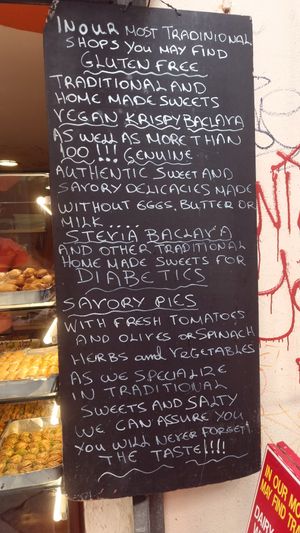 IN OUR MOST TRADINIONAL
SHOPS YOU MAY FIND
GLUTEN FREE
TRADITIONAL AND
HOME MADE SWEETS
VEGAN KRISPY BACLAVA
AS WELL AS MORE THAN
100!!! GENUINE
AUTHENTIC SWEET AND
SAVORY DELICACIES MADE
WITHOUT EGGS, BUTTER OR
MILK....
STEVIA BACLAVA
AND OTHER TRADITIONAL
HOME MADE SWEETS FOR
DIABETICS
SAVORY PIES
WITH FRESH TOMATOES
AND OLIVES OR SPINACH
HERBS and VEGETABLES
AS WE SPECIALIZE
IN TRADITIONAL
SWEETS AND SALTY
WE CAN ASSURE YOU
YOU WILL NEVER FORGET!
THE TASTE!!!!
IN OUR MO
MAY FIND TRA
DAIRY